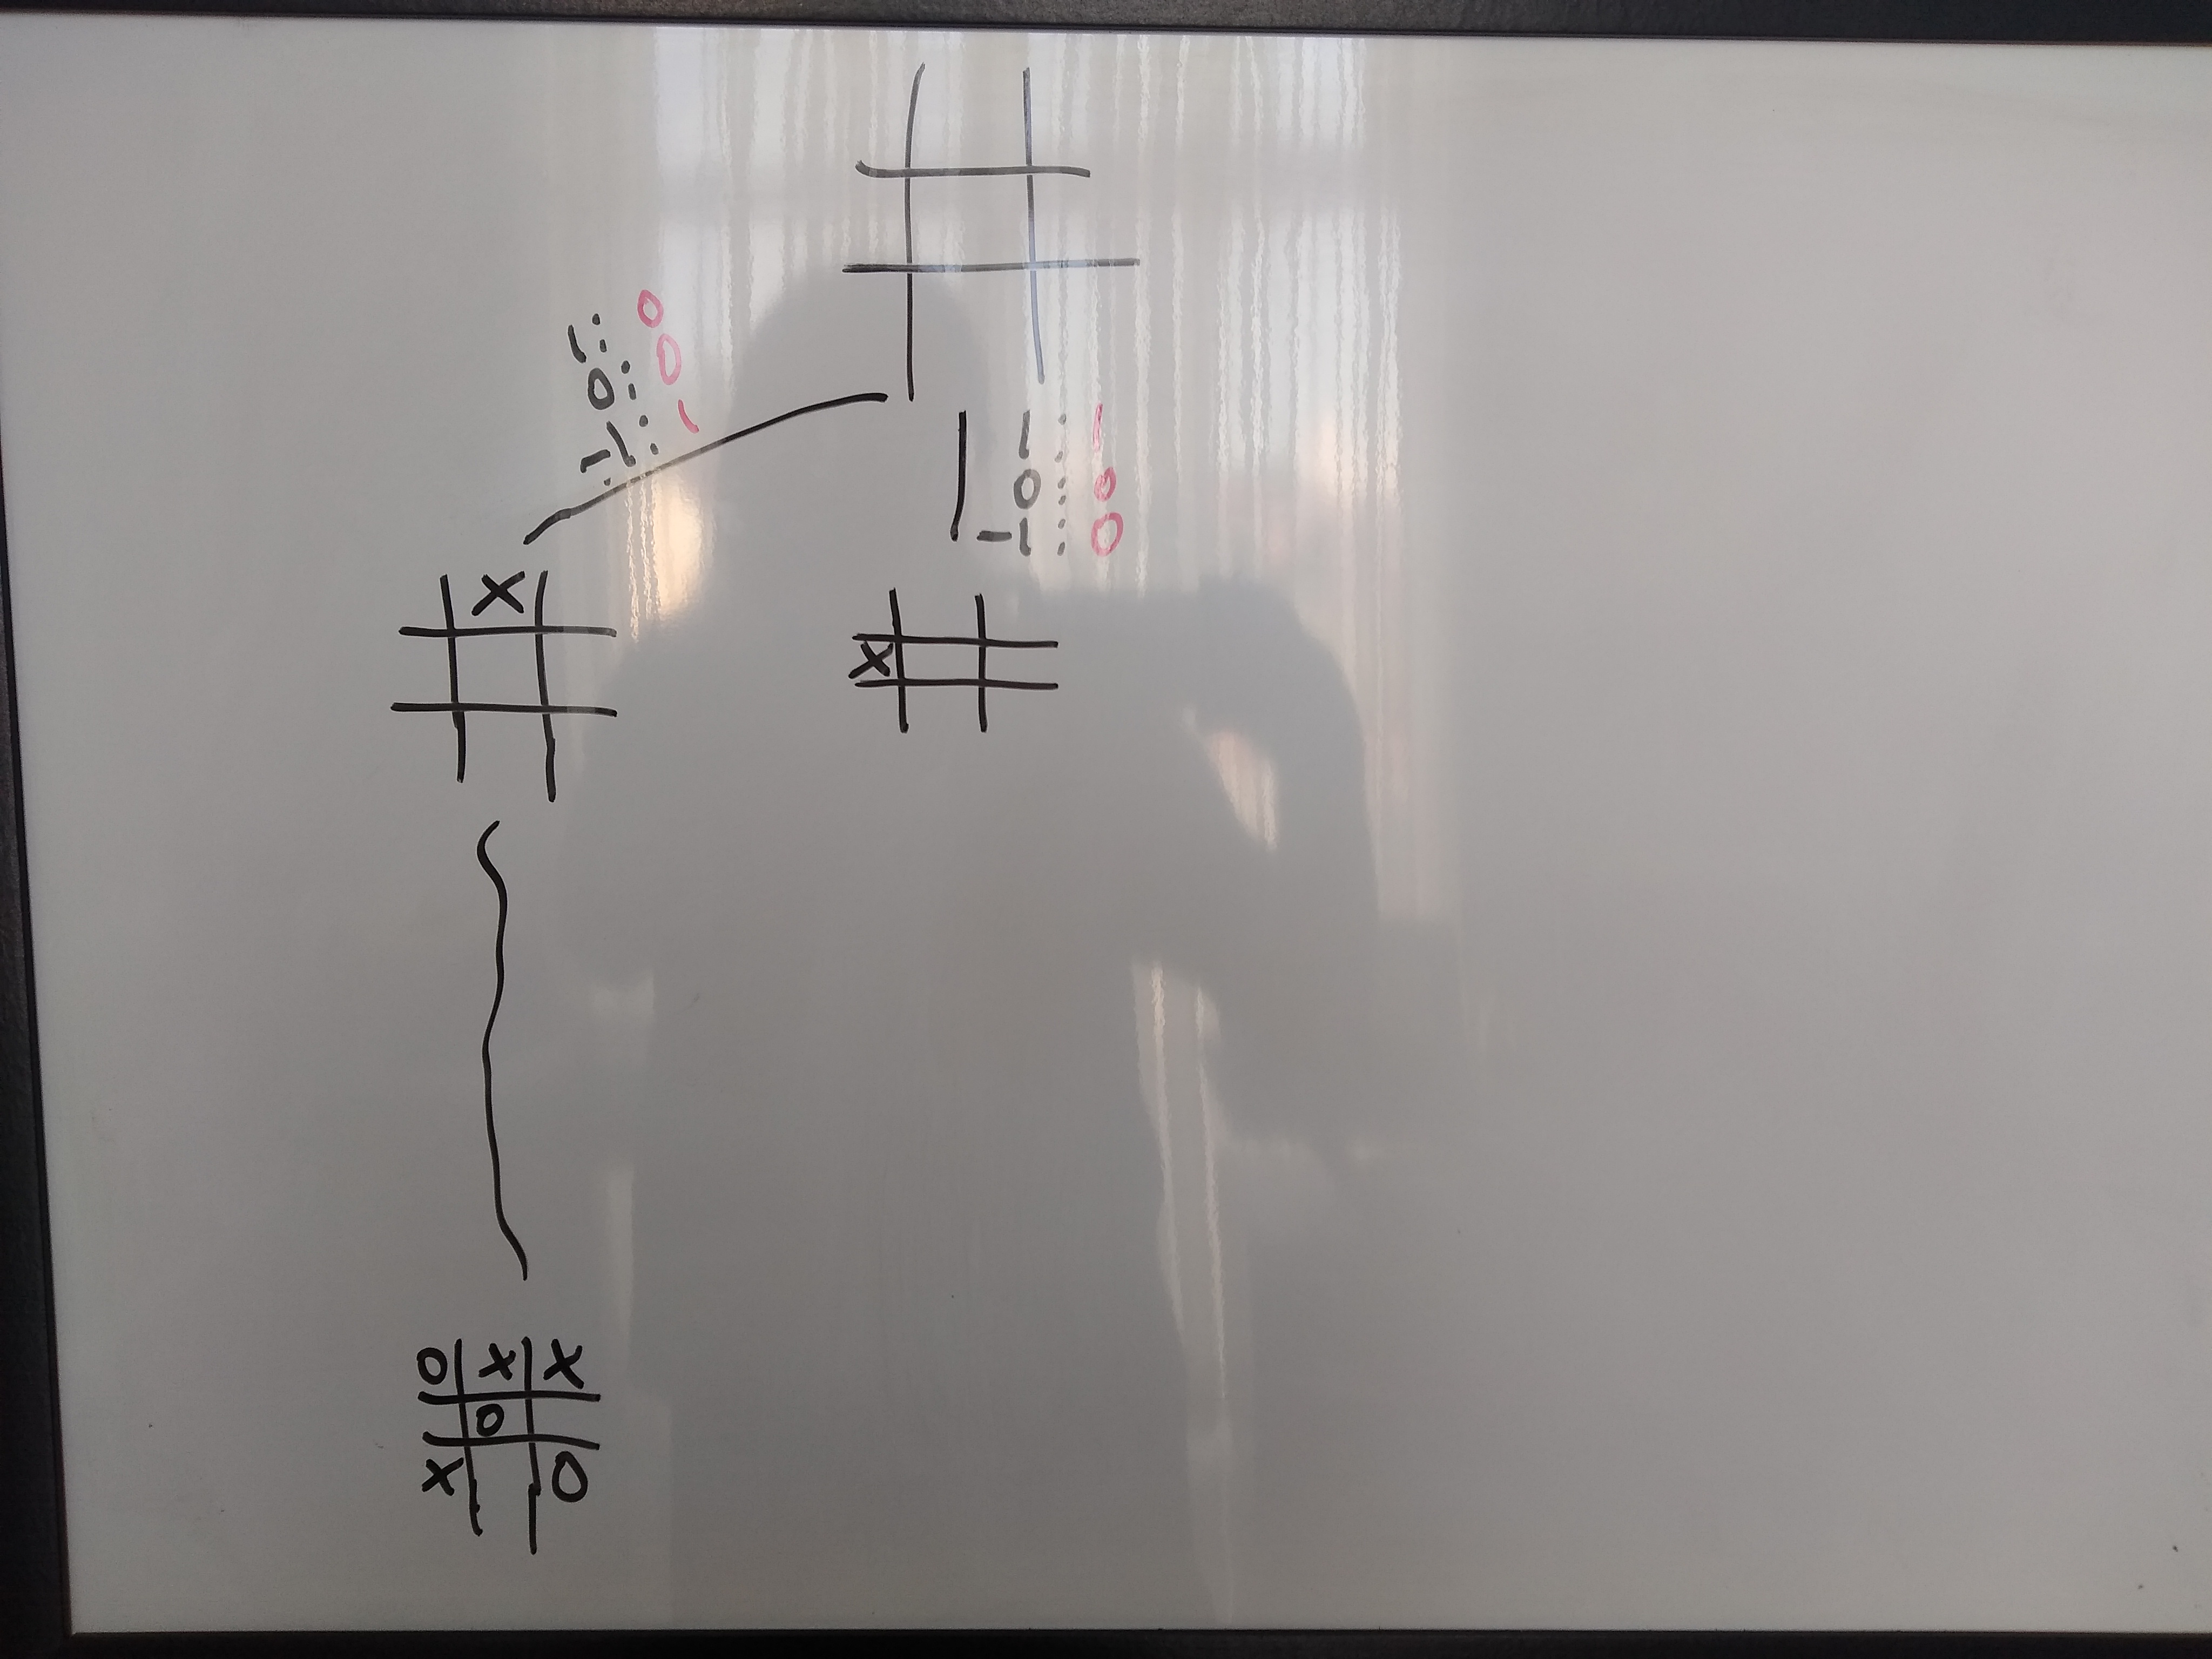 1: 0
0: 0
-1: 1
1: 1
0: 0
-1: 0
X
X
O X X
O
X O